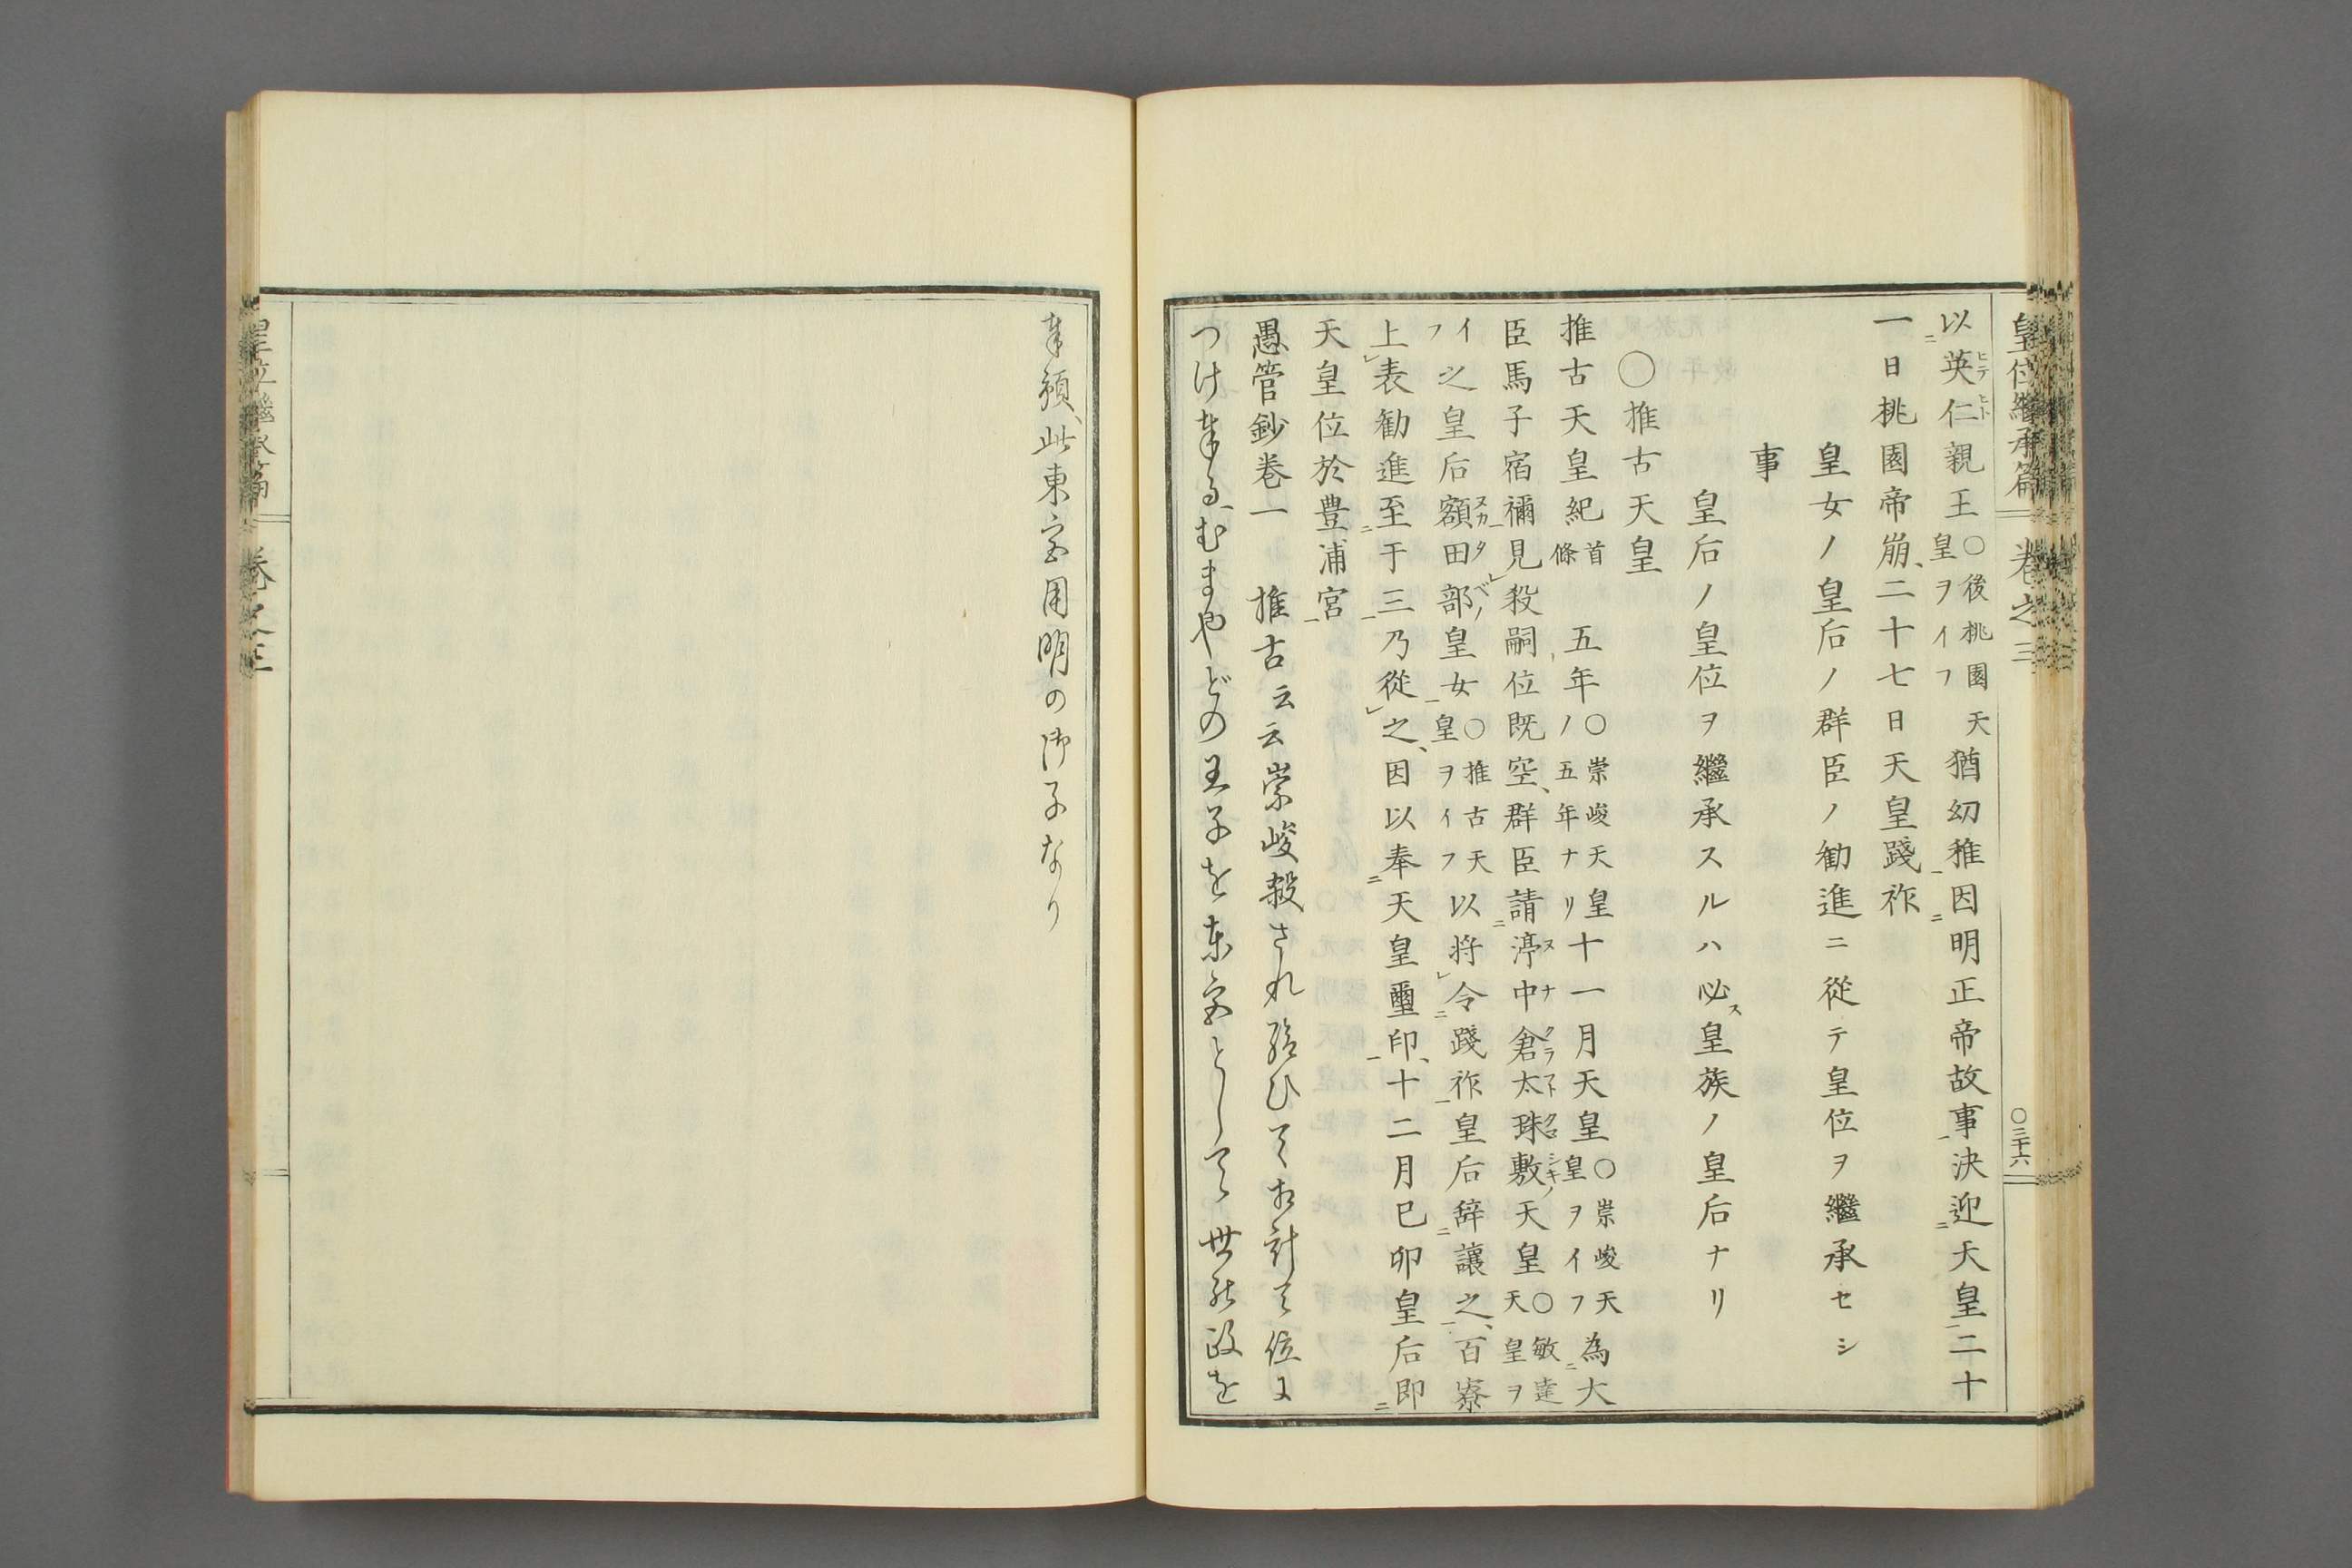 皇位繼承篇 卷之三 〇三十六
以英仁親王〇後桃園天皇ヲイフ猶幼稚因明正帝故事決迎天皇二十
一日桃園帝崩、二十七日天皇踐祚
皇女ノ皇后ノ群臣ノ勸進ニ從テ皇位ヲ繼承セシ
事
皇后ノ皇位ヲ繼承スルハ必ス皇族ノ皇后ナリ
〇推古天皇
推古天皇紀首條 五年〇崇峻天皇ノ五年ナリ十一月天皇〇崇峻天皇ヲイフ為大
臣馬子宿禰見殺嗣位既空、群臣請渟中倉太珠敷天皇〇敏達天皇ヲ
イフ之皇后額田部皇女〇推古天皇ヲイフ以将令踐祚皇后辞讓之、百寮
上表勸進至于三乃從之、因以奉天皇璽印、十二月巳卯皇后即
天皇位於豊浦宮
愚管鈔卷一 推古云云崇峻殺され給ひて相計て位に
つけ奉る、むまやどの王子を東宮として世の政を
奉預、此東宮用明の御子なり
皇位繼承篇 卷之三